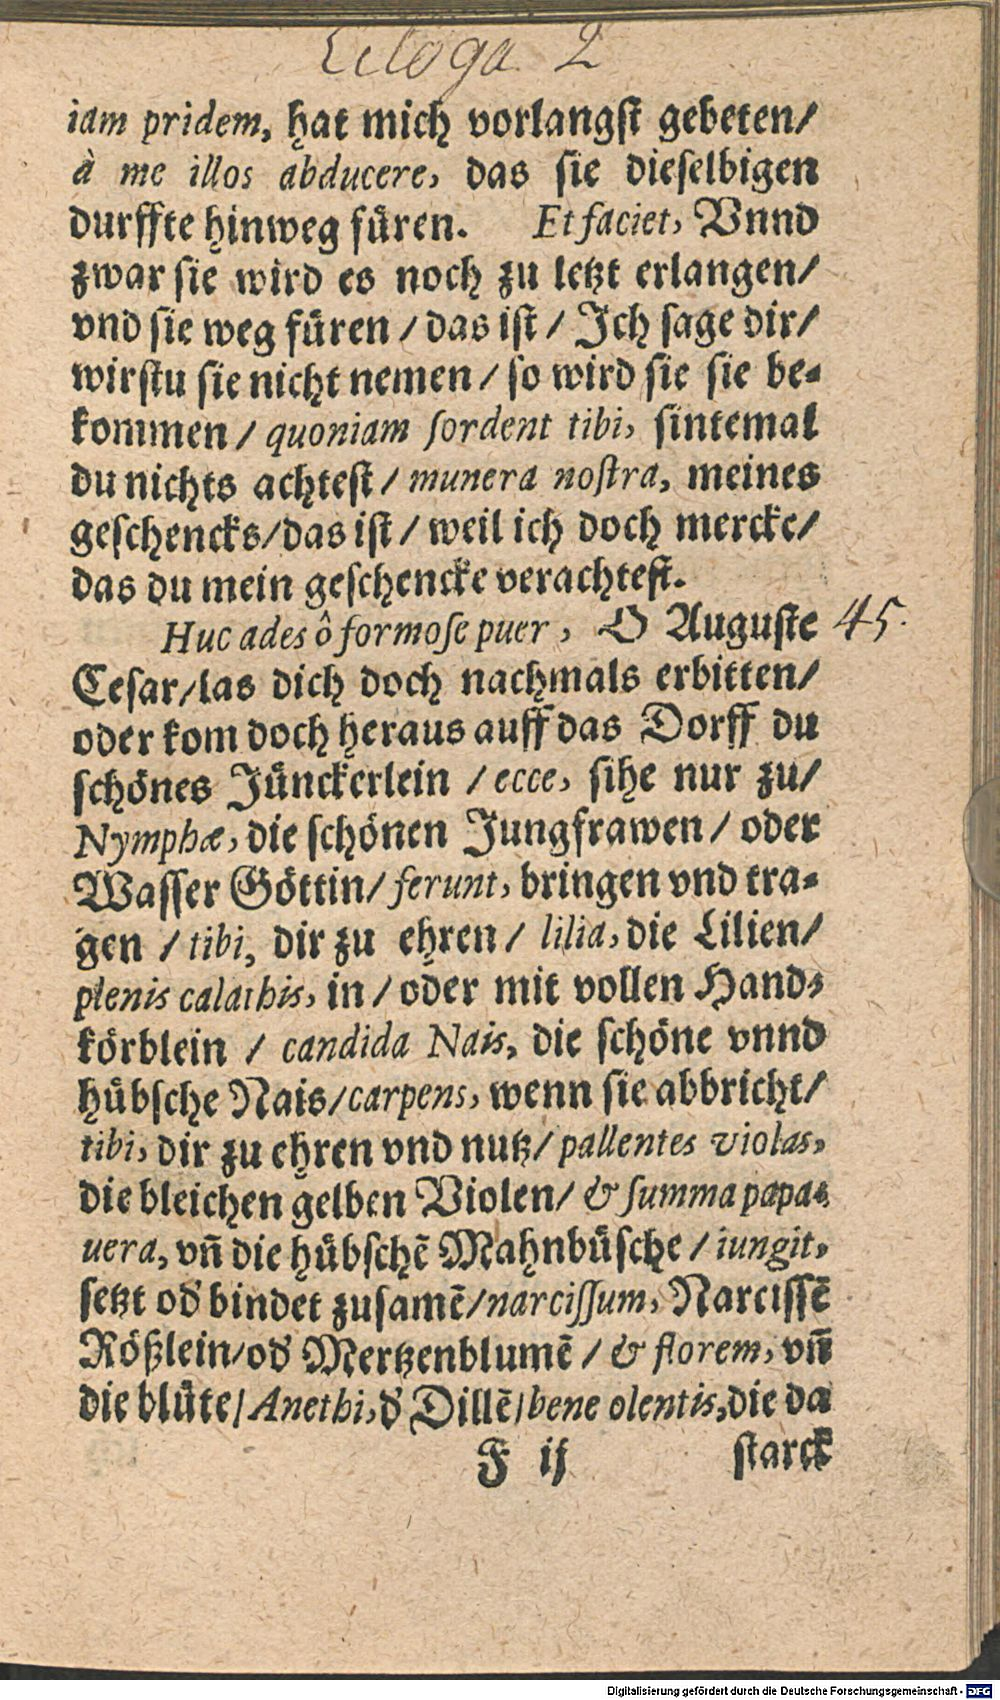 Ecloga 2
iam pridem, hat mich vorlangst gebeten/
à me illos abducere, das sie dieselbigen
durffte hinweg füren. Et faciet, Vnnd
zwar sie wird es noch zu letzt erlangen/
vnd sie weg füren / das ist / Ich sage dir/
wirstu sie nicht nemen / so wird sie sie be-
kommen / quoniam sordent tibi, sintemal
du nichts achtest / munera nostra, meines
geschencks/das ist / weil ich doch mercke/
das du mein geschencke verachtest.
Huc ades ô formose puer, O Auguste 45.
Cesar/las dich doch nachmals erbitten/
oder kom doch heraus auff das Dorff du
schönes Jünckerlein / ecce, sihe nur zu/
Nymphæ, die schönen Jungfrawen / oder
Wasser Göttin/ ferunt, bringen vnd tra-
gen / tibi, dir zu ehren / lilia, die Lilien/
plenis calathis, in / oder mit vollen Hand-
körblein / candida Nais, die schöne vnnd
hübsche Nais/carpens, wenn sie abbricht/
tibi, dir zu ehren vnd nutz/ pallentes violas,
die bleichen gelben Violen/ & summa papa-
uera, vñ die hübschē Mahnbüsche / iungit,
setzt oď bindet zusamē/narcissum, Narcissē
Rößlein/oď Mertzenblumē / & florem, vñ
die blüte/ Anethi, ď Dillē/bene olentis, die da
F ij starck
Digitalisierung gefördert durch die Deutsche Forschungsgemeinschaft - DFG